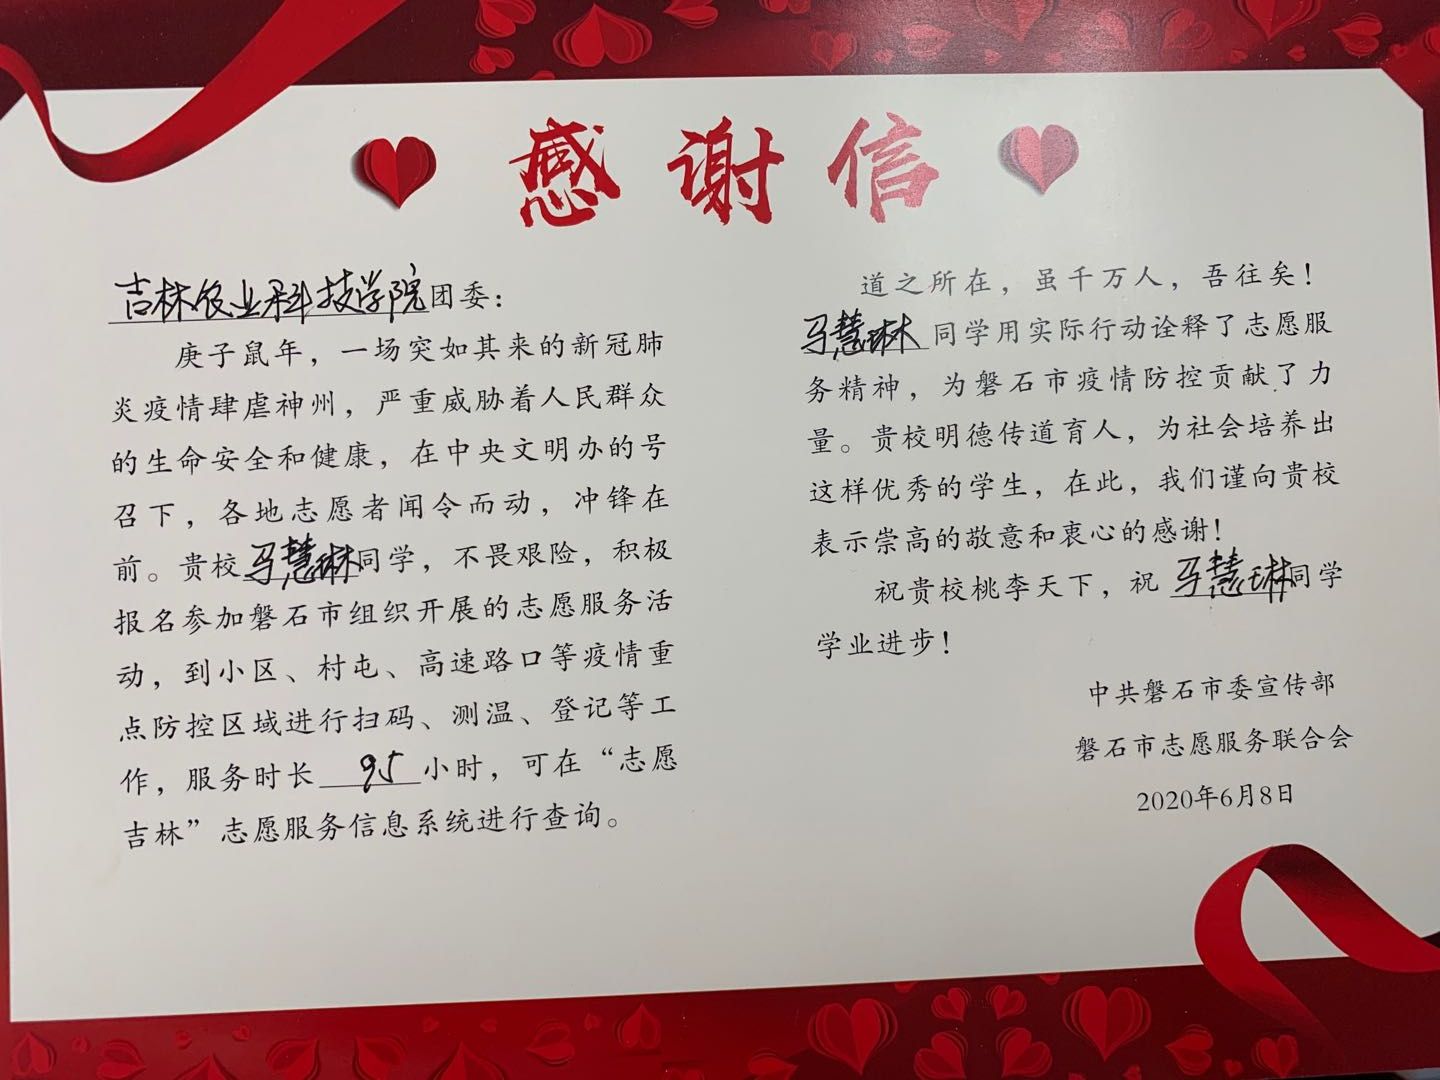 感谢信
吉林农业科技学院团委：
庚子鼠年，一场突如其来的新冠肺
炎疫情肆虐神州，严重威胁着人民群众
的生命安全和健康，在中央文明办的号
召下，各地志愿者闻令而动，冲锋在
前。贵校马慧琳同学，不畏艰险，积极
报名参加磐石市组织开展的志愿服务活
动，到小区、村屯、高速路口等疫情重
点防控区域进行扫码、测温、登记等工
作，服务时长 95 小时，可在“志愿
吉林”志愿服务信息系统进行查询。
道之所在，虽千万人，吾往矣！
马慧琳同学用实际行动诠释了志愿服
务精神，为磐石市疫情防控贡献了力
量。贵校明德传道育人，为社会培养出
这样优秀的学生，在此，我们谨向贵校
表示崇高的敬意和衷心的感谢！
祝贵校桃李天下，祝 马慧琳同学
学业进步！
中共磐石市委宣传部
磐石市志愿服务联合会
2020年6月8日